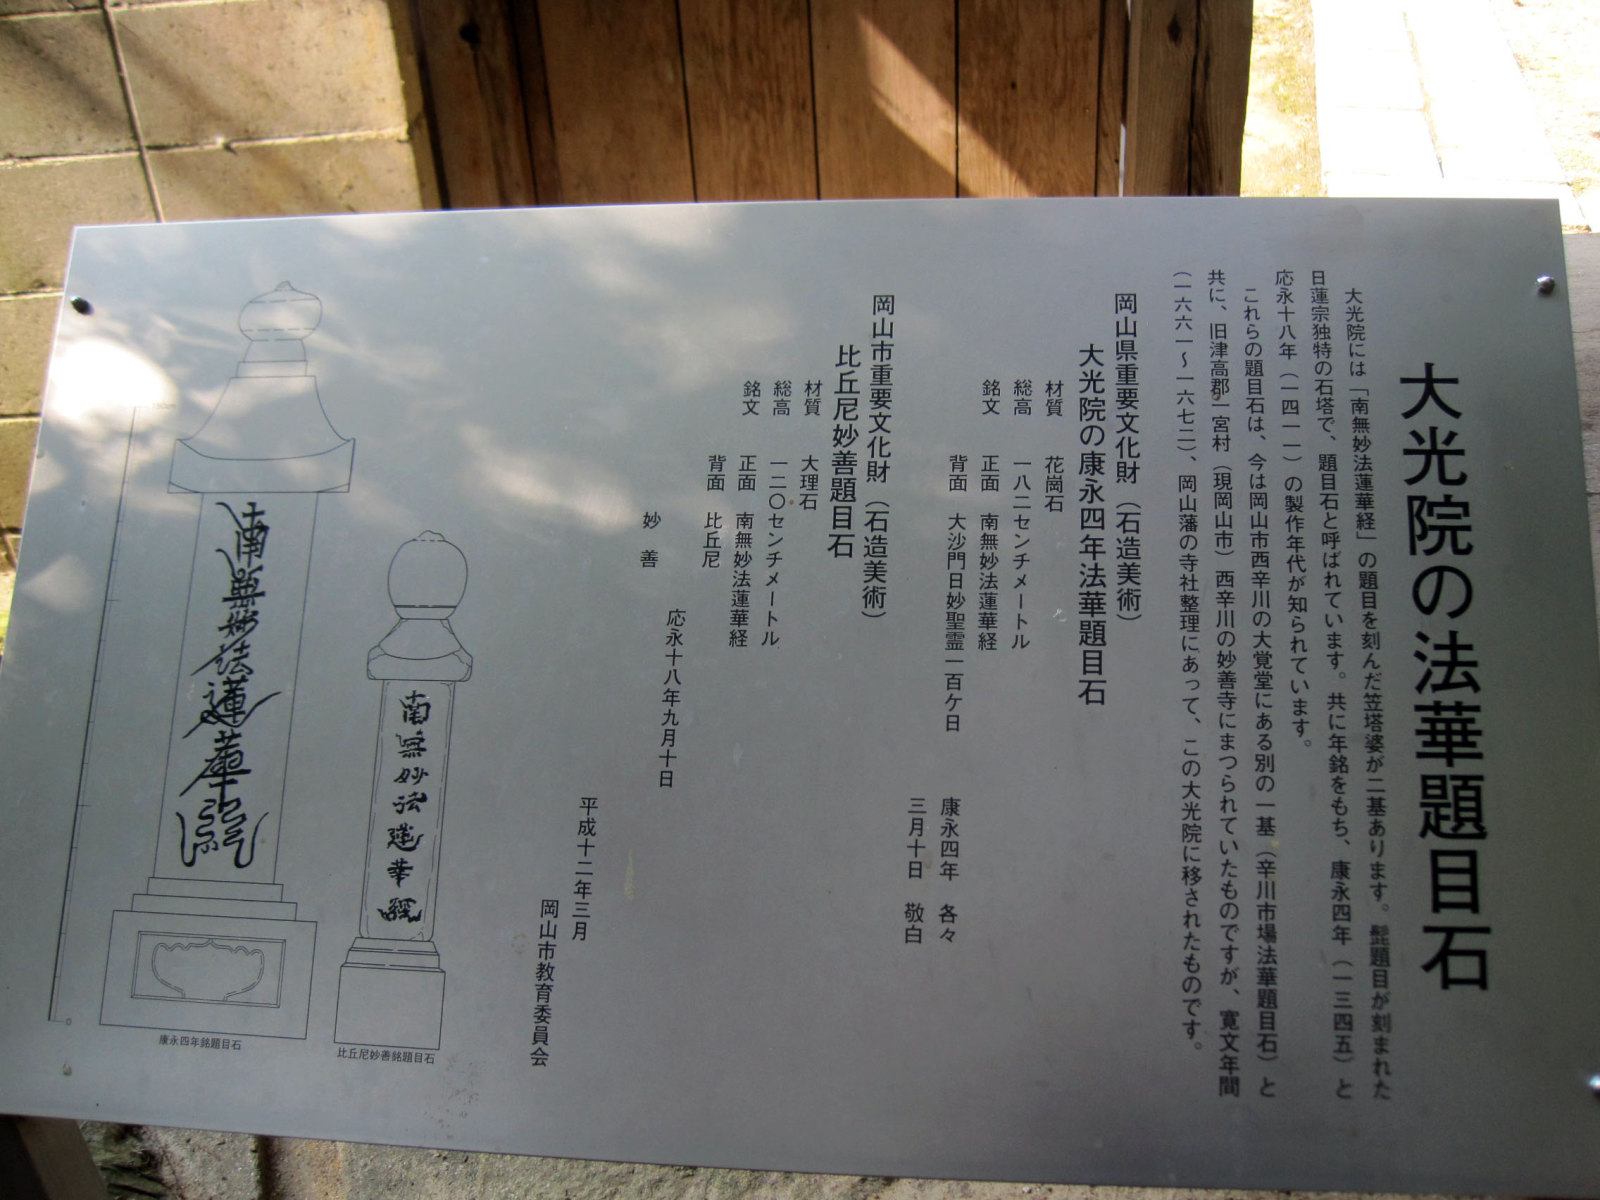 大光院の法華題目石
大光院には「南無妙法蓮華経」の題目を刻んだ笠塔婆が二基あります。髭題目が刻まれた
日蓮宗独特の石塔で、題目石と呼ばれています。共に年銘をもち、康永四年（一三四五）と
応永十八年（一四一一）の製作年代が知られています。
これらの題目石は、今は岡山市西辛川の大覚堂にある別の一基（辛川市場法華題目石）と
共に、旧津高郡一宮村（現岡山市）西辛川の妙善寺にまつられていたものですが、寛文年間
（一六六一～一六七二）、岡山藩の寺社整理にあって、この大光院に移されたものです。
岡山県重要文化財（石造美術）
大光院の康永四年法華題目石
材質　花崗石
総高　一八二センチメートル
銘文　正面　南無妙法蓮華経
背面　大沙門日妙聖霊一百ケ日
康永四年　各々
三月十日　敬白
岡山市重要文化財（石造美術）
比丘尼妙善題目石
材質　大理石
総高　一二〇センチメートル
銘文　正面　南無妙法蓮華経
背面　比丘尼
応永十八年九月十日
妙　善
平成十二年三月
岡山市教育委員会
南無妙法蓮華経
比丘尼妙善銘題目石
南無妙法蓮華經
康永四年銘題目石